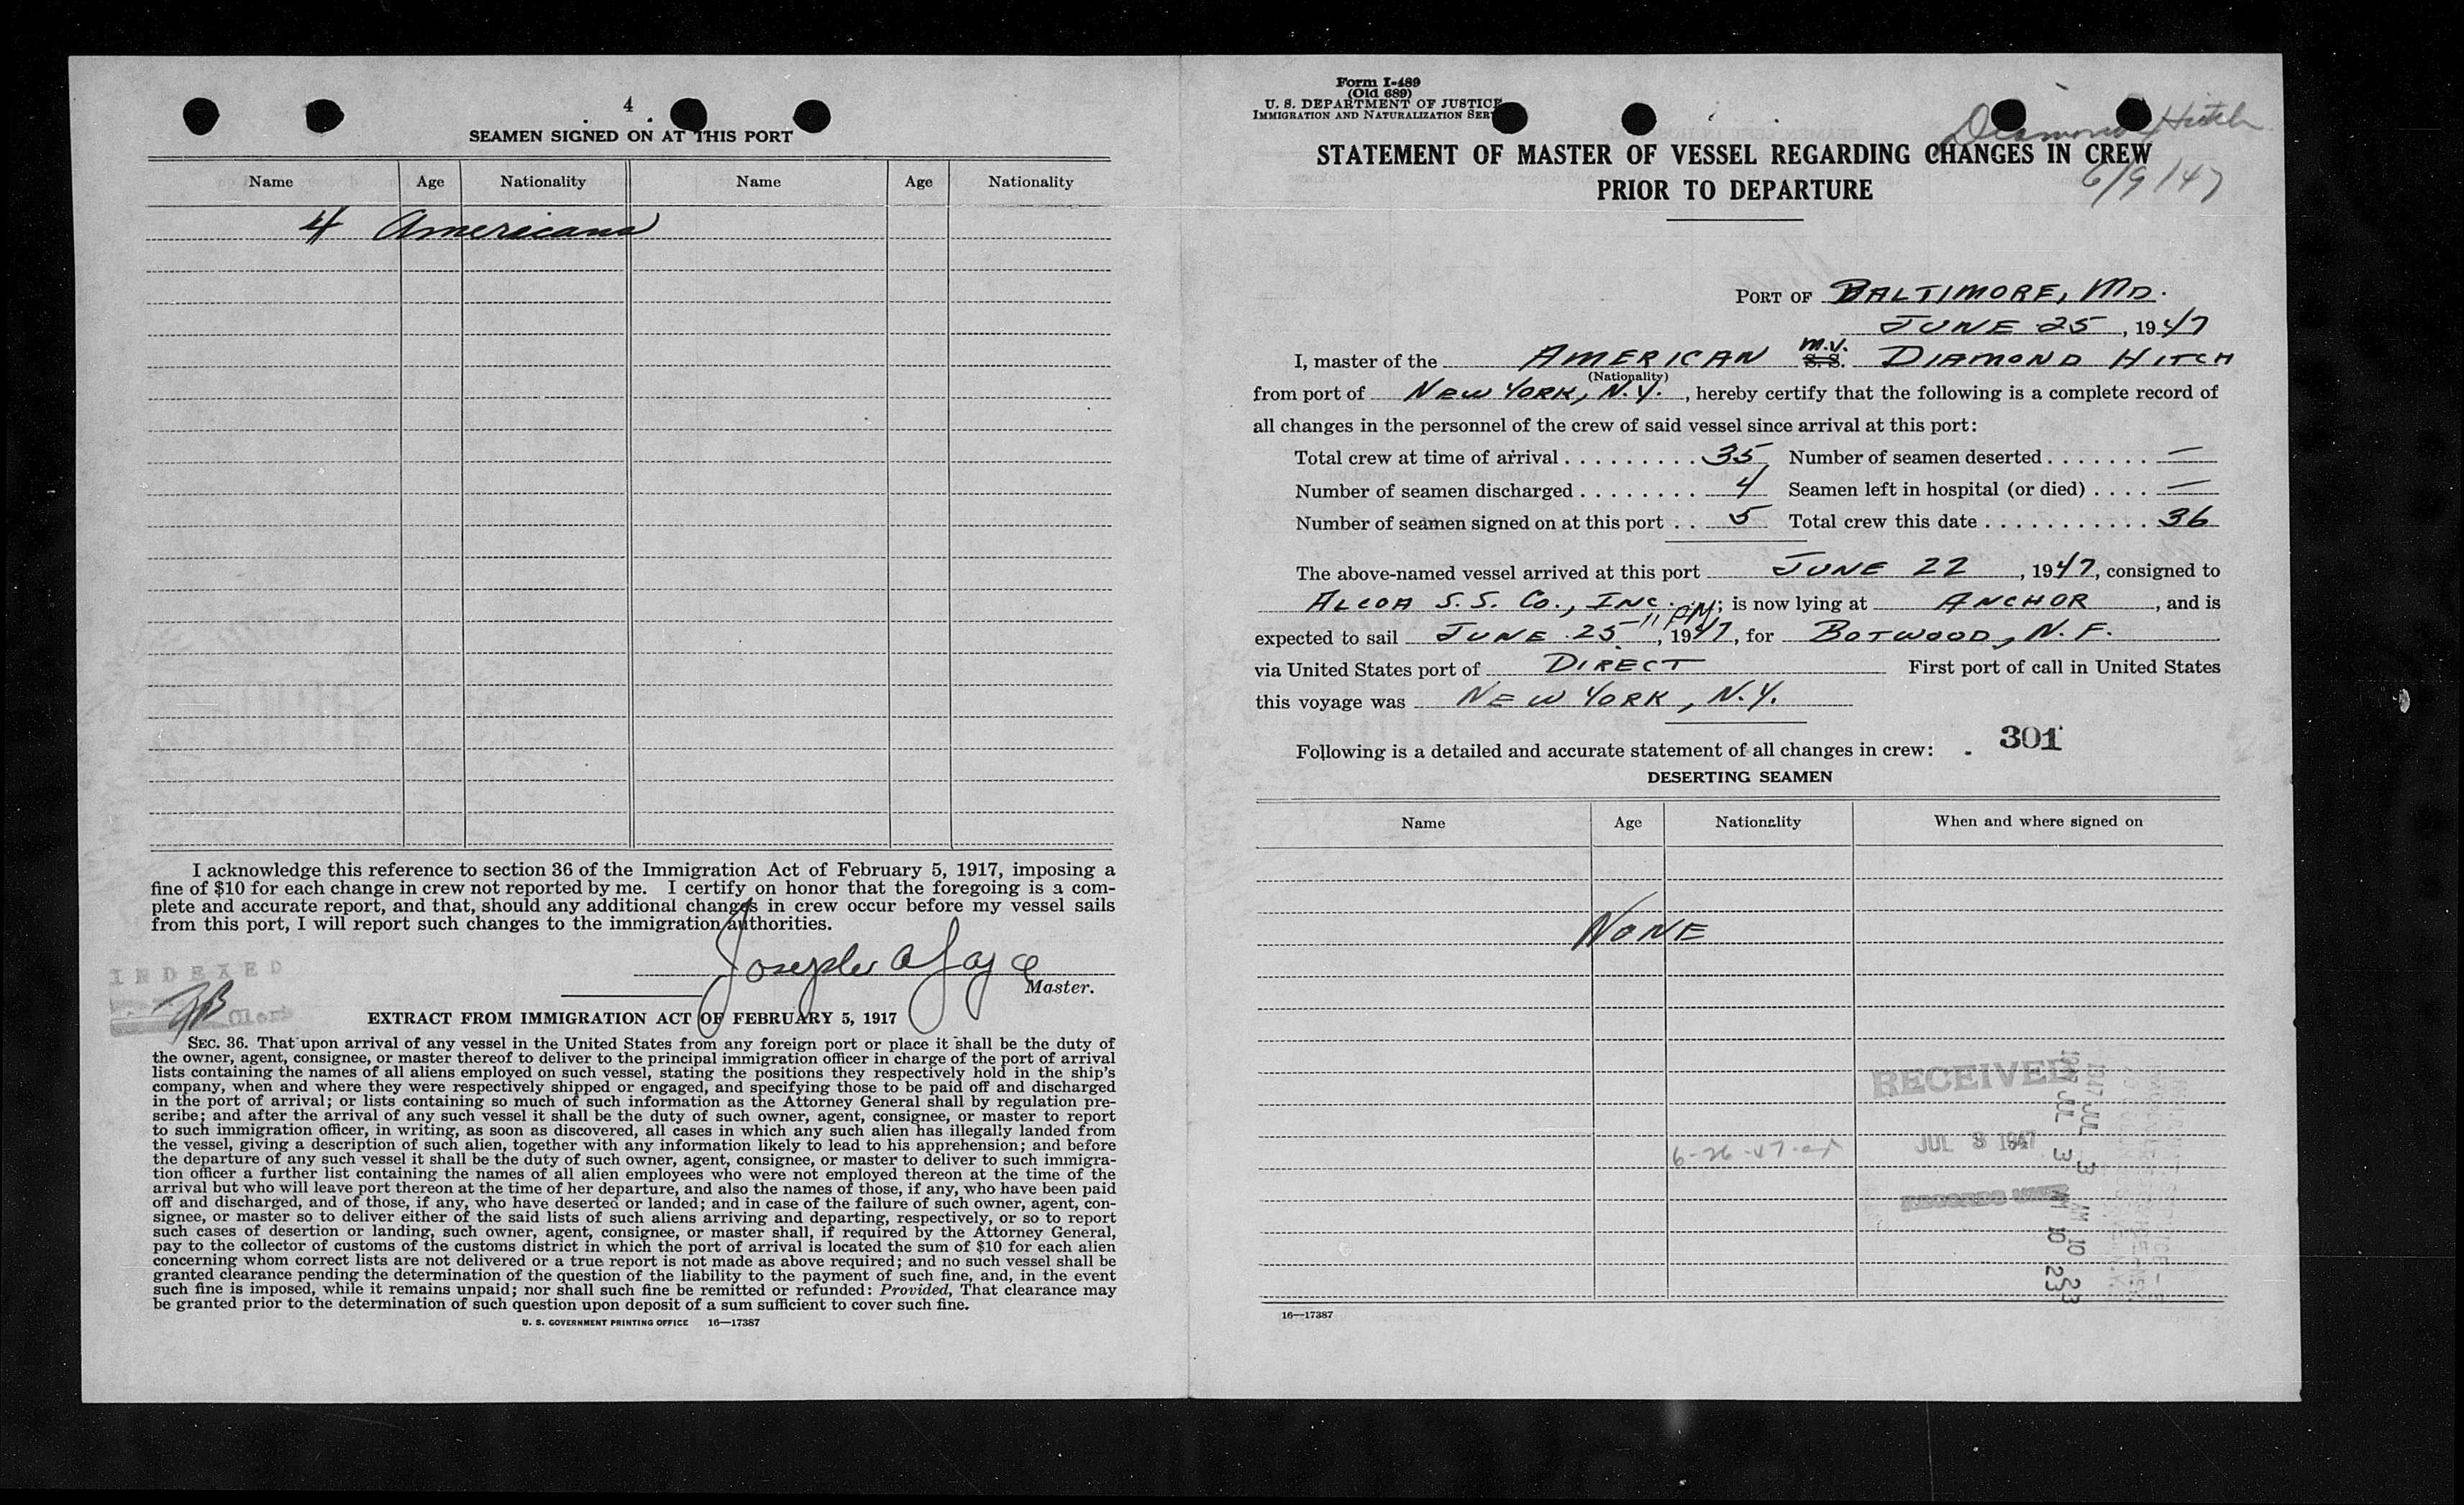 4
SEAMEN SIGNED ON AT THIS PORT
Name Age Nationality Name Age Nationality
4 Americans
I acknowledge this reference to section 36 of the Immigration Act of February 5, 1917, imposing a
fine of $10 for each change in crew not reported by me. I certify on honor that the foregoing is a com-
plete and accurate report, and that, should any additional changes in crew occur before my vessel sails
from this port, I will report such changes to the immigration authorities.
Joseph A
Master.
INDEXED
Clerk
EXTRACT FROM IMMIGRATION ACT OF FEBRUARY 5, 1917
SEC. 36. That upon arrival of any vessel in the United States from any foreign port or place it shall be the duty of
the owner, agent, consignee, or master thereof to deliver to the principal immigration officer in charge of the port of arrival
lists containing the names of all aliens employed on such vessel, stating the positions they respectively hold in the ship's
company, when and where they were respectively shipped or engaged, and specifying those to be paid off and discharged
in the port of arrival; or lists containing so much of such information as the Attorney General shall by regulation pre-
scribe; and after the arrival of any such vessel it shall be the duty of such owner, agent, consignee, or master to report
to such immigration officer, in writing, as soon as discovered, all cases in which any such alien has illegally landed from
the vessel, giving a description of such alien, together with any information likely to lead to his apprehension; and before
the departure of any such vessel it shall be the duty of such owner, agent, consignee, or master to deliver to such immigra-
tion officer a further list containing the names of all alien employees who were not employed thereon at the time of the
arrival but who will leave port thereon at the time of her departure, and also the names of those, if any, who have been paid
off and discharged, and of those, if any, who have deserted or landed; and in case of the failure of such owner, agent, con-
signee, or master so to deliver either of the said lists of such aliens arriving and departing, respectively, or so to report
such cases of desertion or landing, such owner, agent, consignee, or master shall, if required by the Attorney General,
pay to the collector of customs of the customs district in which the port of arrival is located the sum of $10 for each alien
concerning whom correct lists are not delivered or a true report is not made as above required; and no such vessel shall be
granted clearance pending the determination of the question of the liability to the payment of such fine, and, in the event
such fine is imposed, while it remains unpaid; nor shall such fine be remitted or refunded: Provided, That clearance may
be granted prior to the determination of such question upon deposit of a sum sufficient to cover such fine.
U. S. GOVERNMENT PRINTING OFFICE 16—17387
Form I-489
(Old 689)
U. S. DEPARTMENT OF JUSTICE
IMMIGRATION AND NATURALIZATION SER
Diamond Hitch
6/9/47
STATEMENT OF MASTER OF VESSEL REGARDING CHANGES IN CREW
PRIOR TO DEPARTURE
PORT OF BALTIMORE, MD.
JUNE 25, 1947
I, master of the AMERICAN S.S. M.V. DIAMOND HITCH
(Nationality)
from port of NEW YORK, N.Y., hereby certify that the following is a complete record of
all changes in the personnel of the crew of said vessel since arrival at this port:
Total crew at time of arrival . . . . . . . . . 35 Number of seamen deserted . . . . . . . —
Number of seamen discharged . . . . . . . . 4 Seamen left in hospital (or died) . . . . —
Number of seamen signed on at this port . . 5 Total crew this date . . . . . . . . . . . 36
The above-named vessel arrived at this port JUNE 22, 1947, consigned to
ALCOA S.S. Co., INC.; is now lying at ANCHOR, and is
expected to sail JUNE 25 11 PM, 1947, for BOTWOOD, N.F.
via United States port of DIRECT First port of call in United States
this voyage was NEW YORK, N.Y.
Following is a detailed and accurate statement of all changes in crew: 301
DESERTING SEAMEN
Name Age Nationality When and where signed on
NONE
RECEIVED
6-26-47
JUL 3 1947
RECORDS UNIT
1947 JUL 3 AM 10 23
1947 JUL 3 AM 10 23
16—17387